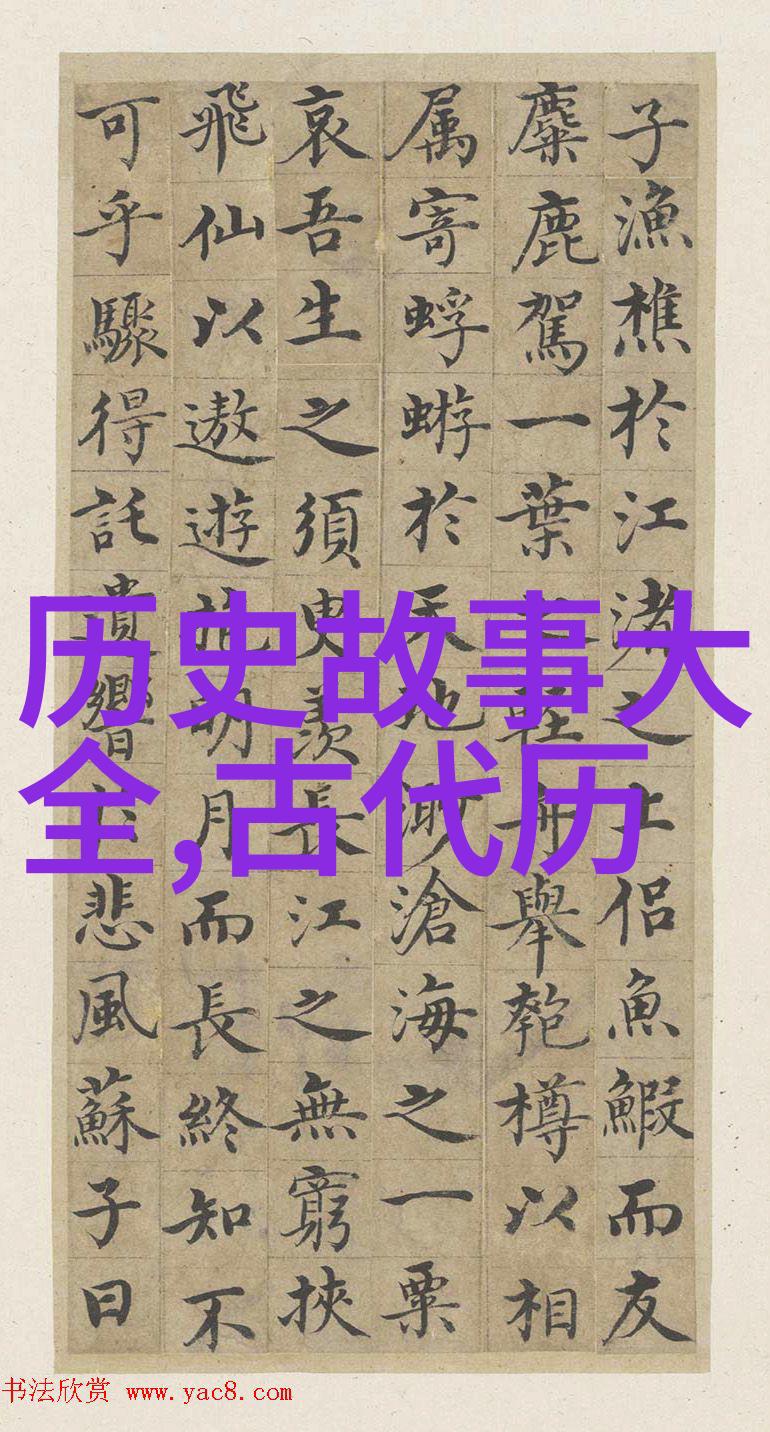 子漁樵於江渚之上侶魚鰕而友
麋鹿駕一葉之輕舟舉匏樽以相
属寄蜉蝣於天地渺滄海之一粟
哀吾生之須臾羨長江之無窮挾
飛仙以遨遊抱明月而長終知不
可乎驟得託遺響於悲風蘇子曰
历史故事大
全,古代历
书法欣赏 www.yac8.com